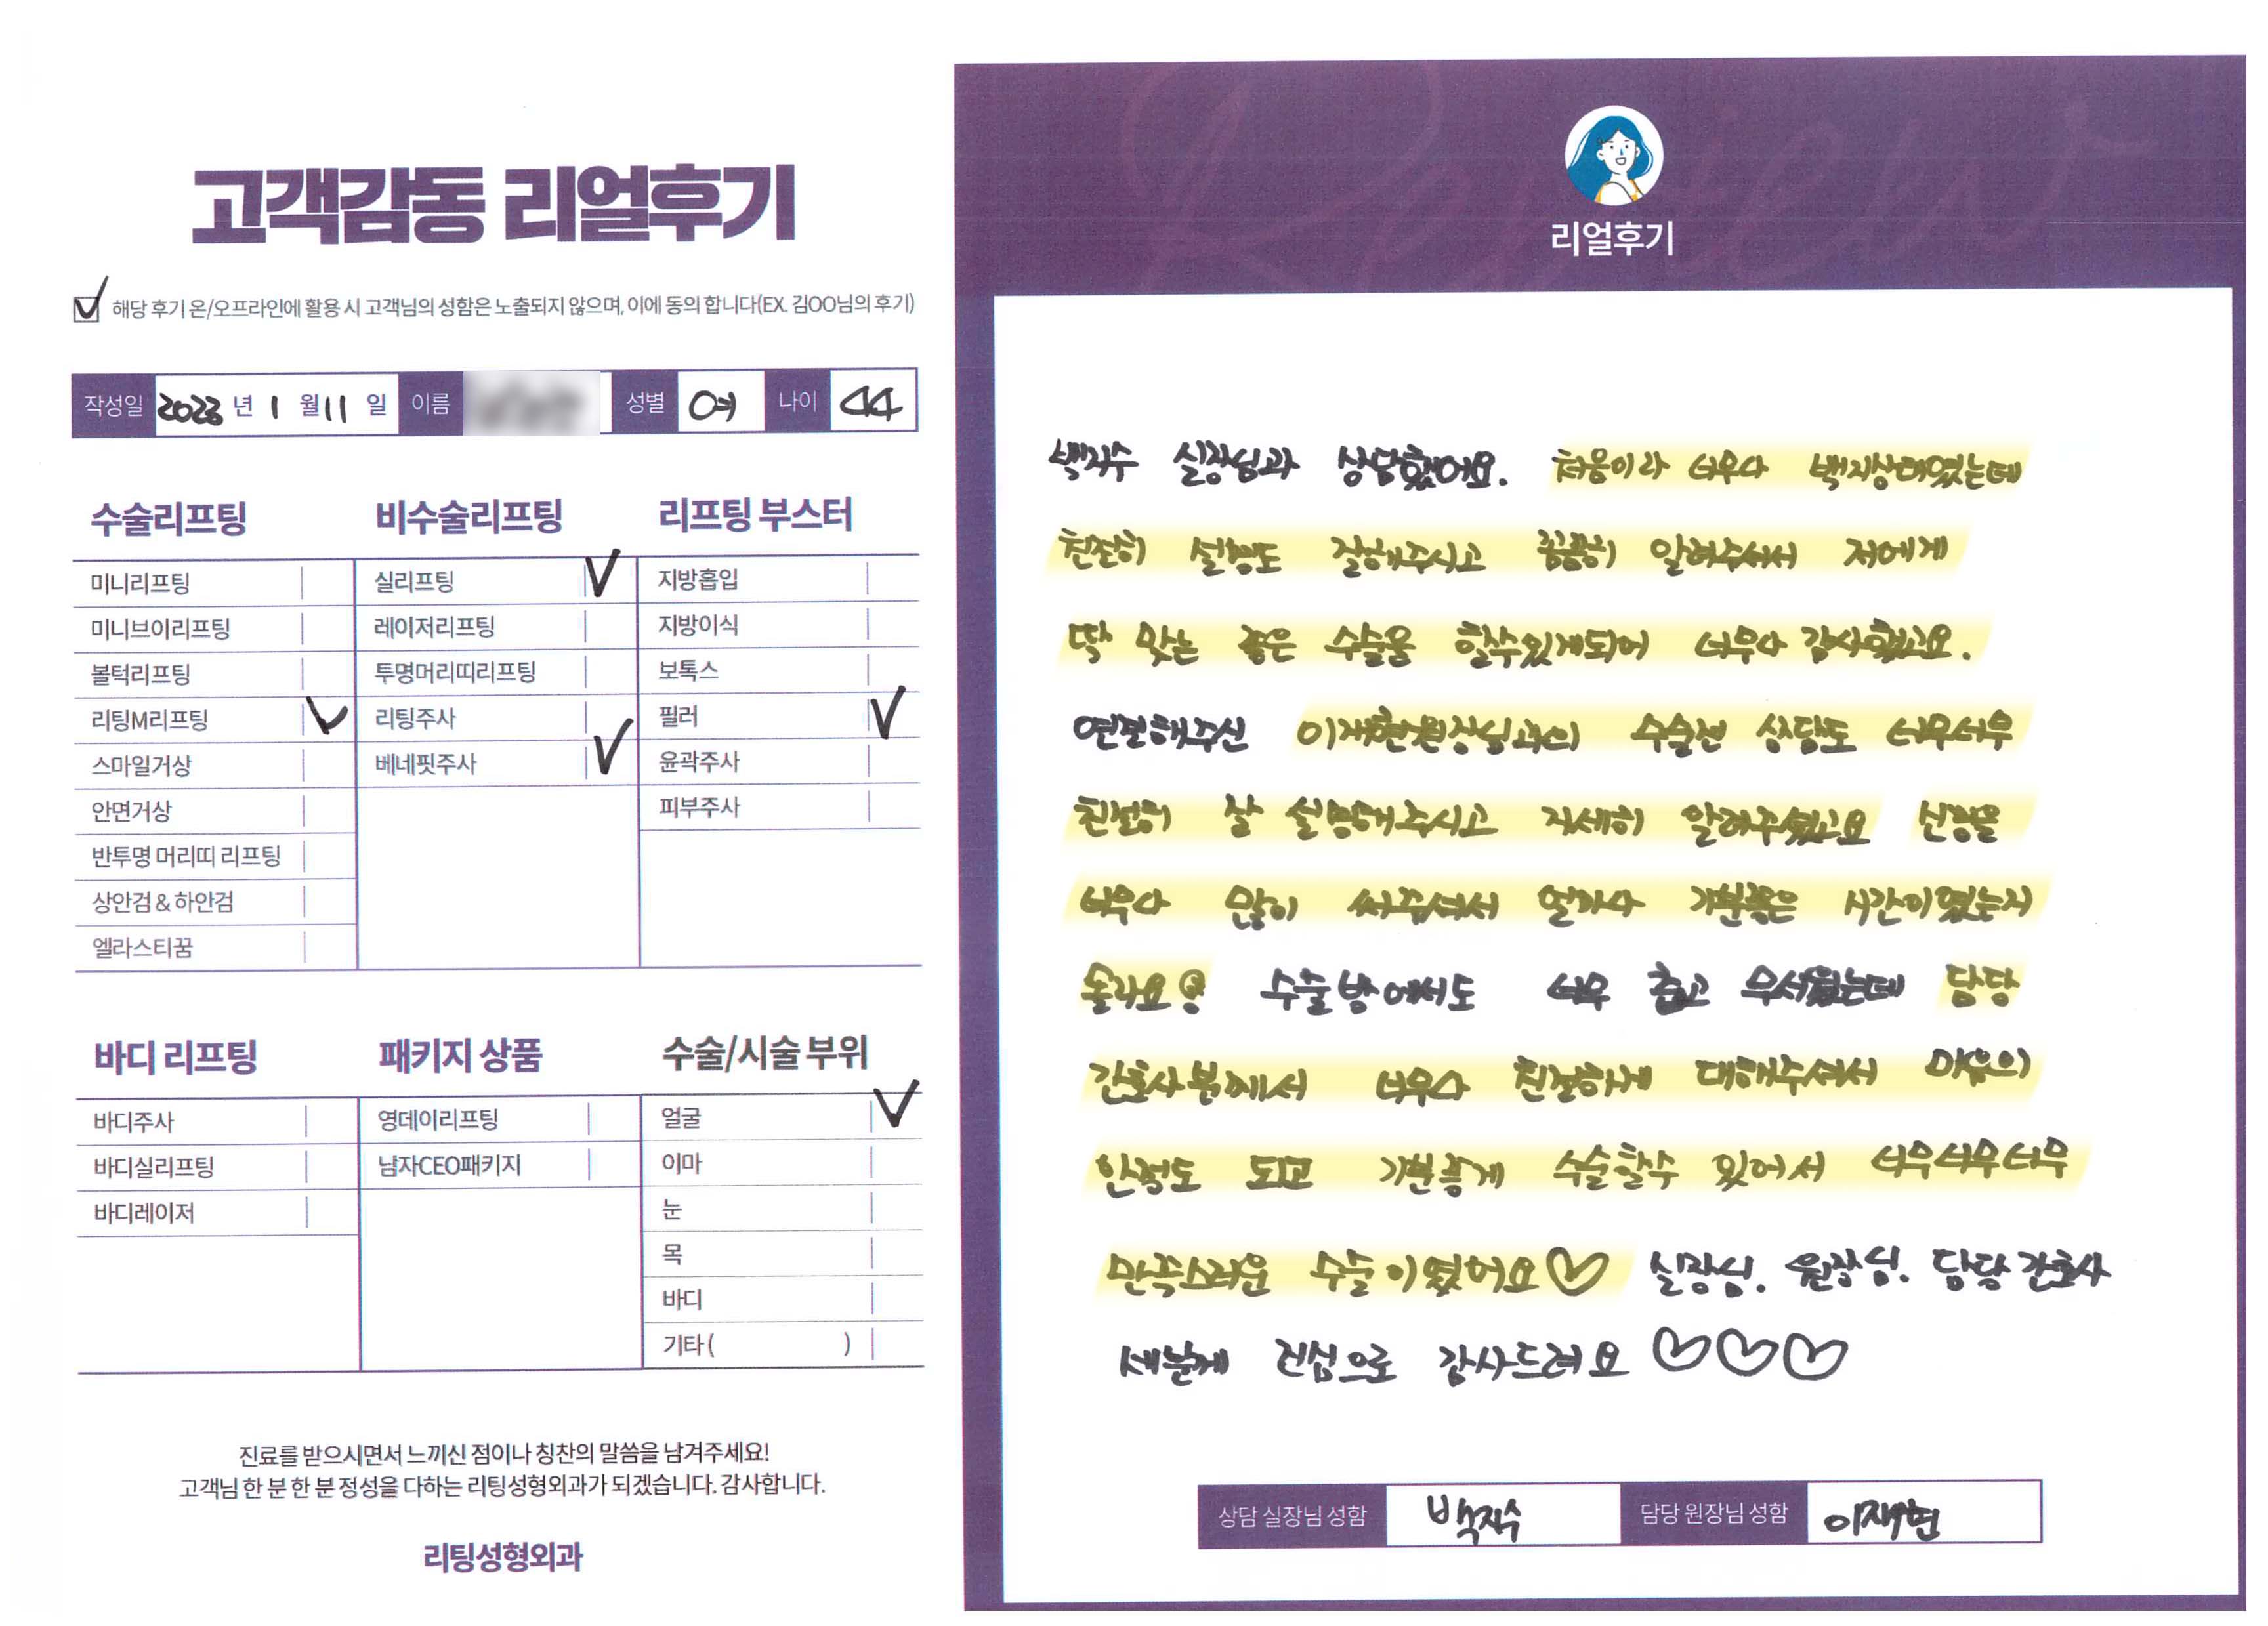 고객감동 리얼후기
해당 후기 온/오프라인에 활용 시 고객님의 성함은 노출되지 않으며, 이에 동의 합니다(EX. 김OO님의 후기)
작성일 2023 년 1 월 11 일 이름 성별 여 나이 44
수술리프팅
미니리프팅
미니브이리프팅
볼턱리프팅
리팅M리프팅
스마일거상
안면거상
반투명 머리띠 리프팅
상안검 & 하안검
엘라스티꿈
비수술리프팅
실리프팅
레이저리프팅
투명머리띠리프팅
리팅주사
베네핏주사
리프팅 부스터
지방흡입
지방이식
보톡스
필러
윤곽주사
피부주사
바디 리프팅
바디주사
바디실리프팅
바디레이저
패키지 상품
영데이리프팅
남자CEO패키지
수술/시술 부위
얼굴
이마
눈
목
바디
기타 ( )
진료를 받으시면서 느끼신 점이나 칭찬의 말씀을 남겨주세요!
고객님 한 분 한 분 정성을 다하는 리팅성형외과가 되겠습니다. 감사합니다.
리팅성형외과
Review
리얼후기
백지수 실장님과 상담했어요. 처음이라 너무나 백지상태였는데
친절히 설명도 잘해주시고 꼼꼼히 알려주셔서 저에게
딱 맞는 좋은 수술을 할수있게되어 너무나 감사했고요.
연결해주신 이재현원장님과의 수술전 상담도 너무너무
친절히 잘 설명해주시고 자세히 알려주셨고요 신경을
너무나 많이 써주셔서 얼마나 기분좋은 시간이였는지
몰라요 수술방에서도 너무 춥고 무서웠는데 담당
간호사분께서 너무나 친절하게 대해주셔서 마음의
안정도 되고 기분좋게 수술할수 있어서 너무너무너무
만족스러운 수술이였어요♡ 실장님. 원장님. 담당간호사
세분께 진심으로 감사드려요 ♡♡♡
상담 실장님 성함 백지수 담당 원장님 성함 이재현